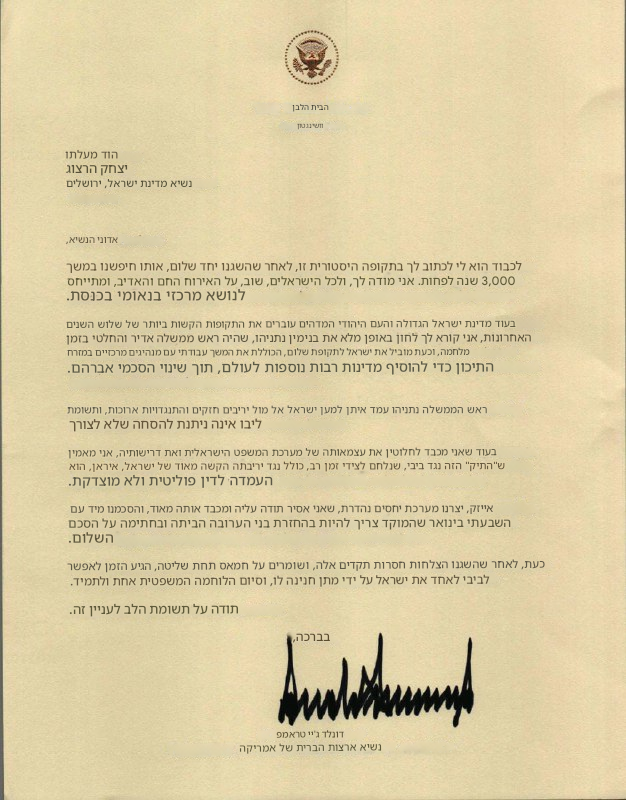 הבית הלבן
וושינגטון
הוד מעלתו
יצחק הרצוג
נשיא מדינת ישראל, ירושלים
אדוני הנשיא,
לכבוד הוא לי לכתוב לך בתקופה היסטורית זו, לאחר שהשגנו יחד שלום, אותו חיפשנו במשך
3,000 שנה לפחות. אני מודה לך, ולכל הישראלים, שוב, על האירוח החם והאדיב, ומתייחס
לנושא מרכזי בנאומי בכנסת.
בעוד מדינת ישראל הגדולה והעם היהודי המדהים עוברים את התקופות הקשות ביותר של שלוש השנים
האחרונות, אני קורא לך לחון באופן מלא את בנימין נתניהו, שהיה ראש ממשלה אדיר והחלטי בזמן
מלחמה, וכעת מוביל את ישראל לתקופת שלום, הכוללת את המשך עבודתי עם מנהיגים מרכזיים במזרח
התיכון כדי להוסיף מדינות רבות נוספות לעולם, תוך שינוי הסכמי אברהם.
ראש הממשלה נתניהו עמד איתן למען ישראל אל מול יריבים חזקים והתנגדויות ארוכות, ותשומת
ליבו אינה ניתנת להסחה שלא לצורך
בעוד שאני מכבד לחלוטין את עצמאותה של מערכת המשפט הישראלית ואת דרישותיה, אני מאמין
ש"התיק" הזה נגד ביבי, שנלחם לצידי זמן רב, כולל נגד יריבתה הקשה מאוד של ישראל, איראן, הוא
העמדה לדין פוליטית ולא מוצדקת.
אייזק, יצרנו מערכת יחסים נהדרת, שאני אסיר תודה עליה ומכבד אותה מאוד, והסכמנו מיד עם
השבעתי בינואר שהמוקד צריך להיות בהחזרת בני הערובה הביתה ובחתימה על הסכם
השלום.
כעת, לאחר שהשגנו הצלחות חסרות תקדים אלה, ושומרים על חמאס תחת שליטה, הגיע הזמן לאפשר
לביבי לאחד את ישראל על ידי מתן חנינה לו, וסיום הלוחמה המשפטית אחת ולתמיד.
תודה על תשומת הלב לעניין זה.
בברכה,
דונלד ג'יי טראמפ
נשיא ארצות הברית של אמריקה